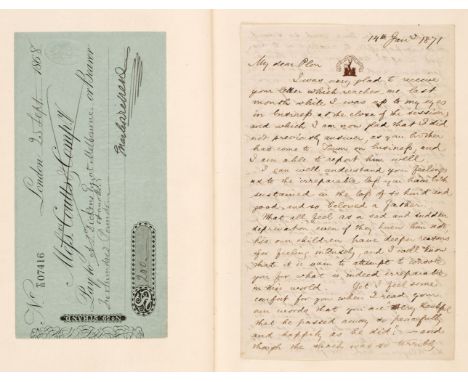 No. D/A 07416
London 25 Sept. 1868
Messrs. Coutts & Compy.
Pay to A. Dickens Esqr. at Melbourne or Bearer
Two hundred Pounds
£200
Charles Dickens
No. 59 STRAND
14th Jany 1871
My dear Plorn
I was very glad to receive
your letter which reached me last
month while I was up to my eyes
in business at the close of the session,
and which I am now glad that I did
not previously answer as your brother
has come to Town on business and
I am able to report him well.
I can well understand your feelings
as to the irreparable loss you have both
sustained in the loss of so kind and
good, and so beloved a father.
That all feel as a sad and sudden
deprivation even if they knew him not
his own children have deeper reasons
for feeling intensely and I well know
that it is vain to attempt to console
you for what is indeed irreparable
in this world. Yet I feel some
comfort for you when I read your
own words that you are very thankful
that he passed away so peacefully
and happily as he did; and
though the shock was so terribly